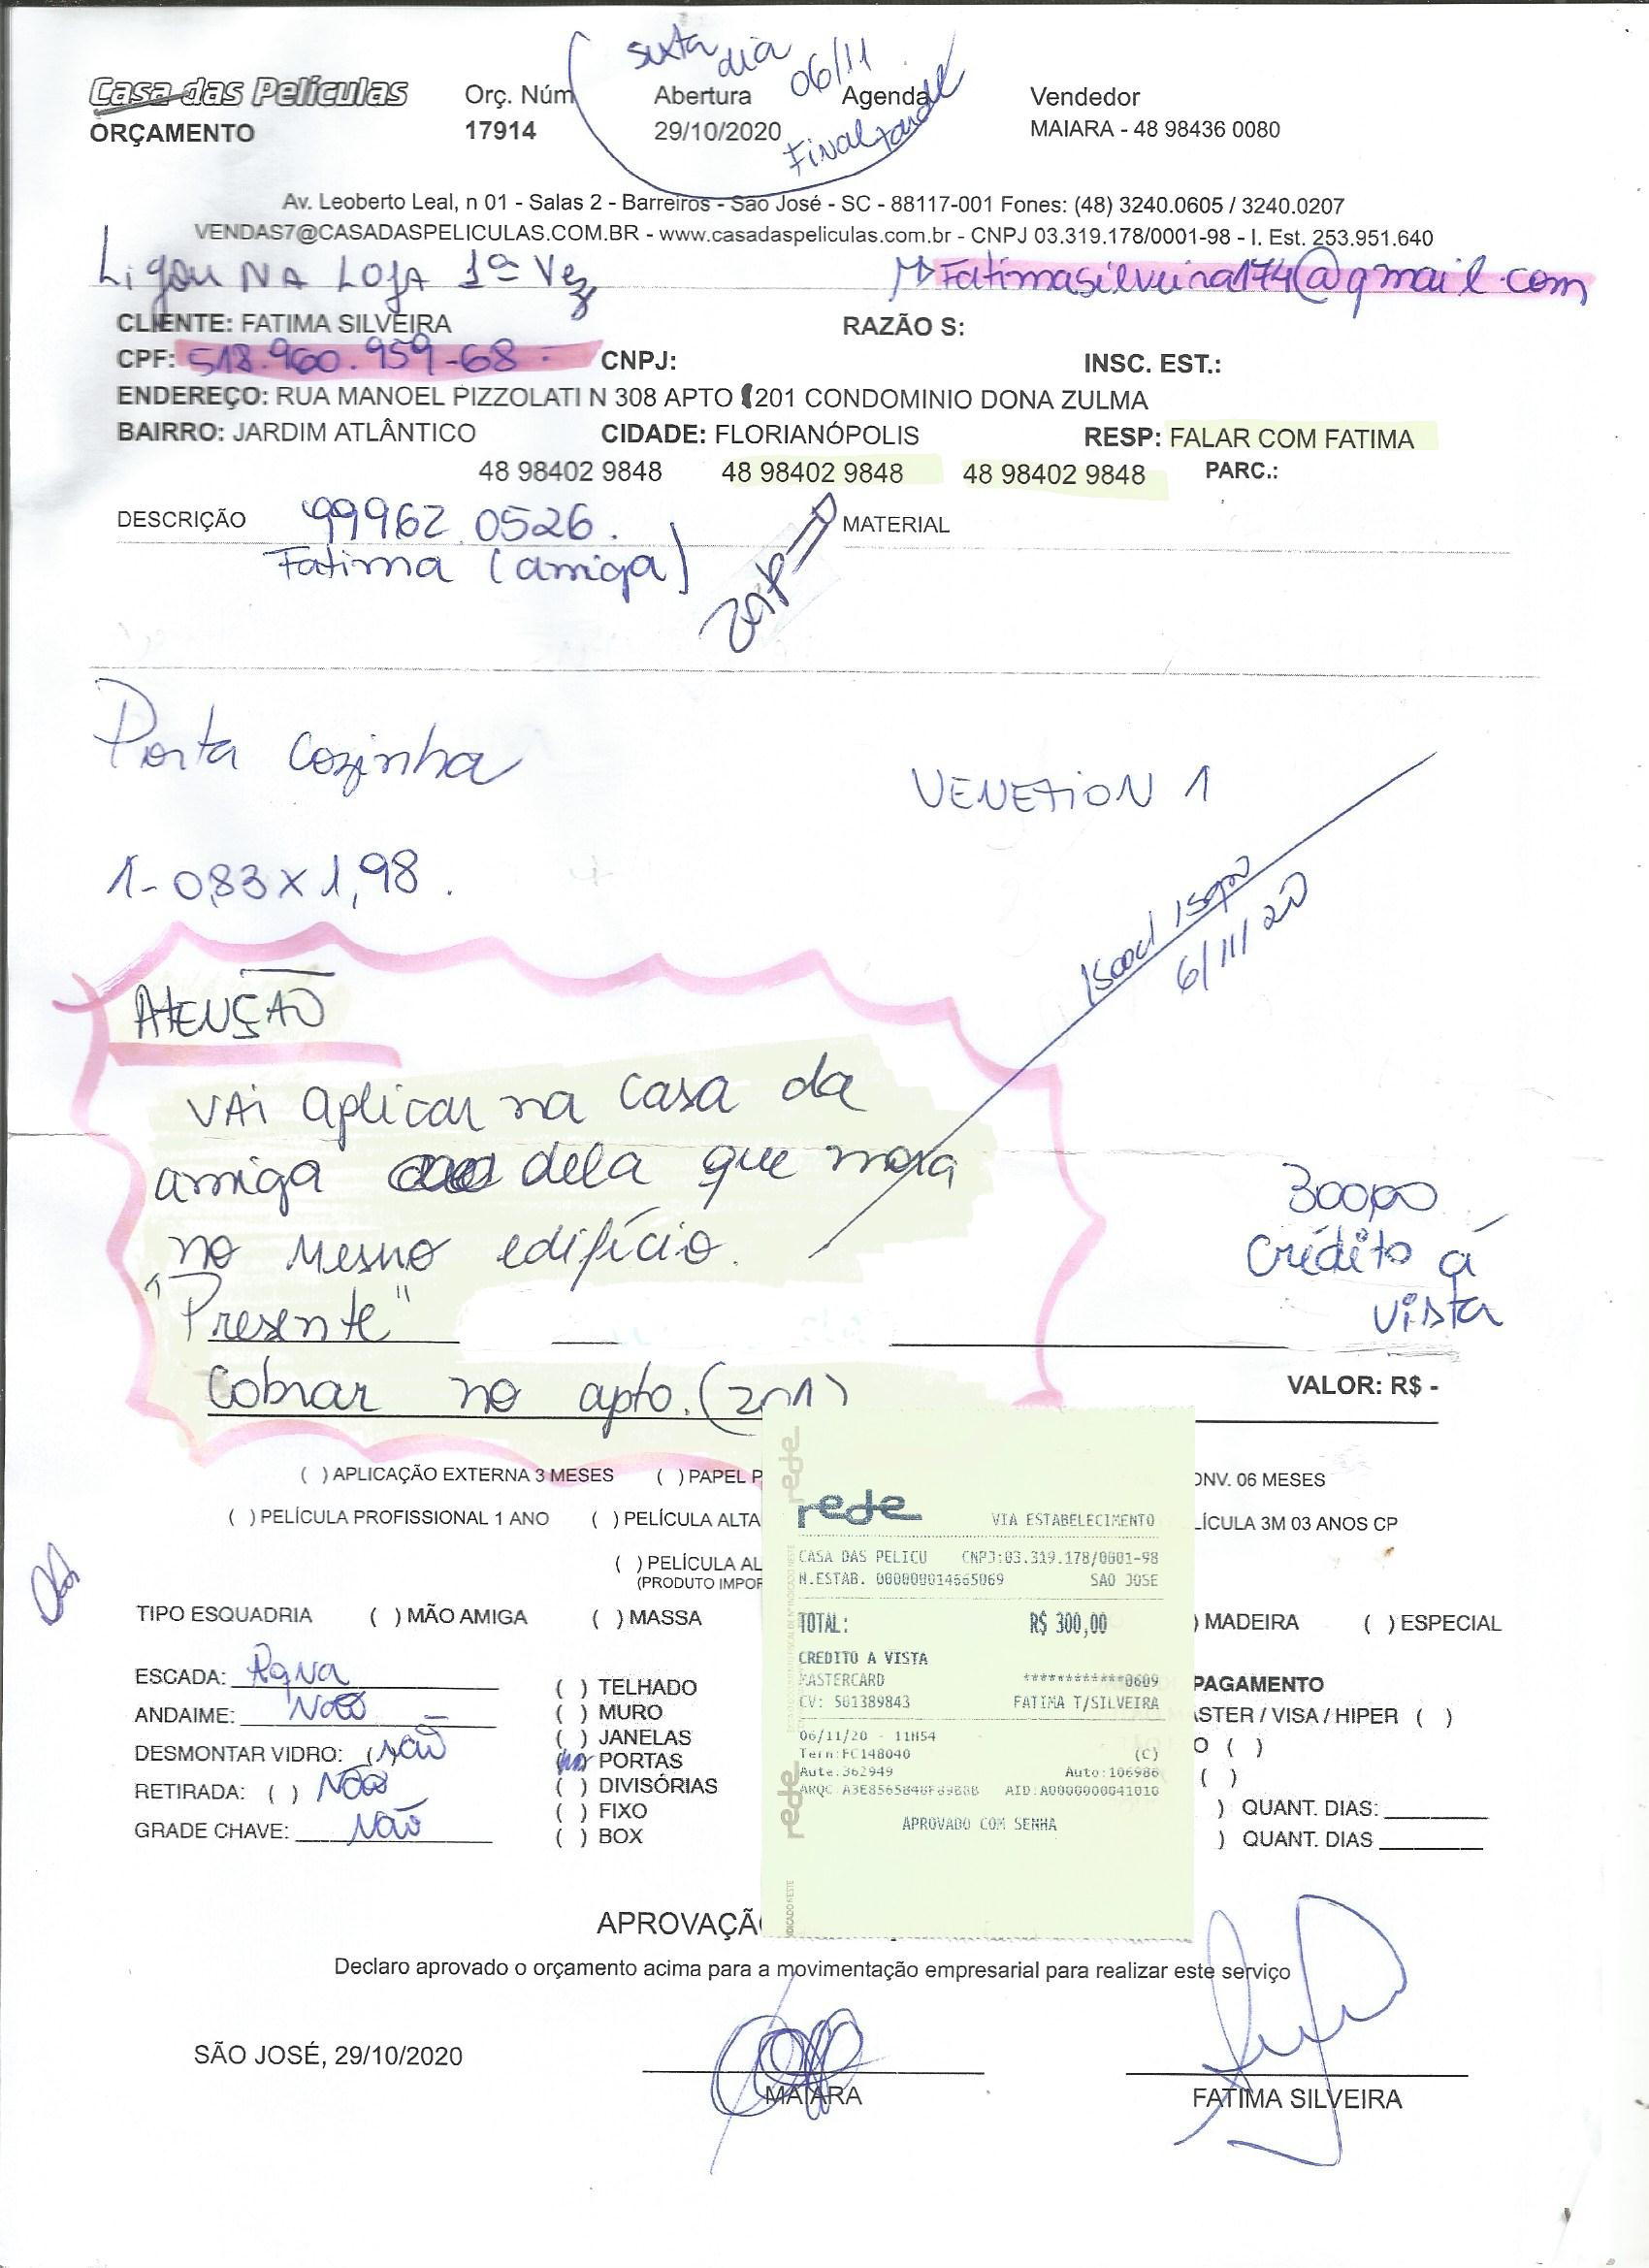 sexta dia 06/11
Final tarde
Casa das Películas Orç. Núm Abertura Agenda Vendedor
ORÇAMENTO 17914 29/10/2020 MAIARA - 48 98436 0080
Av. Leoberto Leal, n 01 - Salas 2 - Barreiros - São José - SC - 88117-001 Fones: (48) 3240.0605 / 3240.0207
VENDAS7@CASADASPELICULAS.COM.BR - www.casadaspeliculas.com.br - CNPJ 03.319.178/0001-98 - I. Est. 253.951.640
Ligou NA LOJA 1ª Vez Fatimasilveira174@gmail.com
CLIENTE: FATIMA SILVEIRA RAZÃO S:
CPF: 518.960.959-68 CNPJ: INSC. EST.:
ENDEREÇO: RUA MANOEL PIZZOLATI N 308 APTO 201 CONDOMINIO DONA ZULMA
BAIRRO: JARDIM ATLÂNTICO CIDADE: FLORIANÓPOLIS RESP: FALAR COM FATIMA
48 98402 9848 48 98402 9848 48 98402 9848 PARC.:
DESCRIÇÃO 99962 0526. MATERIAL
Fatima (amiga) zap
Porta Cozinha
VENETION 1
1- 0,83 x 1,98.
6/11/20
ATENÇÃO
VAi aplicar na casa da
amiga dela que mora
no mesmo edifício.
"Presente"
Cobrar no apto. (201)
300,00
Crédito á
vista
VALOR: R$ -
( ) APLICAÇÃO EXTERNA 3 MESES ( ) PAPEL P ONV. 06 MESES
( ) PELÍCULA PROFISSIONAL 1 ANO ( ) PELÍCULA ALTA LÍCULA 3M 03 ANOS CP
( ) PELÍCULA AL
(PRODUTO IMPOR
TIPO ESQUADRIA ( ) MÃO AMIGA ( ) MASSA ) MADEIRA ( ) ESPECIAL
ESCADA:
ANDAIME: NÃO
DESMONTAR VIDRO: ( ) NÃO
RETIRADA: ( ) NÃO
GRADE CHAVE: NÃO
( ) TELHADO
( ) MURO
( ) JANELAS
PORTAS
( ) DIVISÓRIAS
( ) FIXO
( ) BOX
rede
rede VIA ESTABELECIMENTO
CASA DAS PELICU CNPJ:03.319.178/0001-98
N.ESTAB. 000000014665069 SAO JOSE
TOTAL: R$ 300,00
CREDITO A VISTA
MASTERCARD ************0609
CV: 501389843 FATIMA T/SILVEIRA
06/11/20 - 11H54
Term:FC148040 (C)
Aute:362949 Auto:106986
ARQC: A3E8565848F89B8B AID:A0000000041010
APROVADO COM SENHA
rede
PAGAMENTO
ASTER / VISA / HIPER ( )
O ( )
( )
) QUANT. DIAS:
) QUANT. DIAS
APROVAÇÃ
Declaro aprovado o orçamento acima para a movimentação empresarial para realizar este serviço
SÃO JOSÉ, 29/10/2020
MAIARA FATIMA SILVEIRA